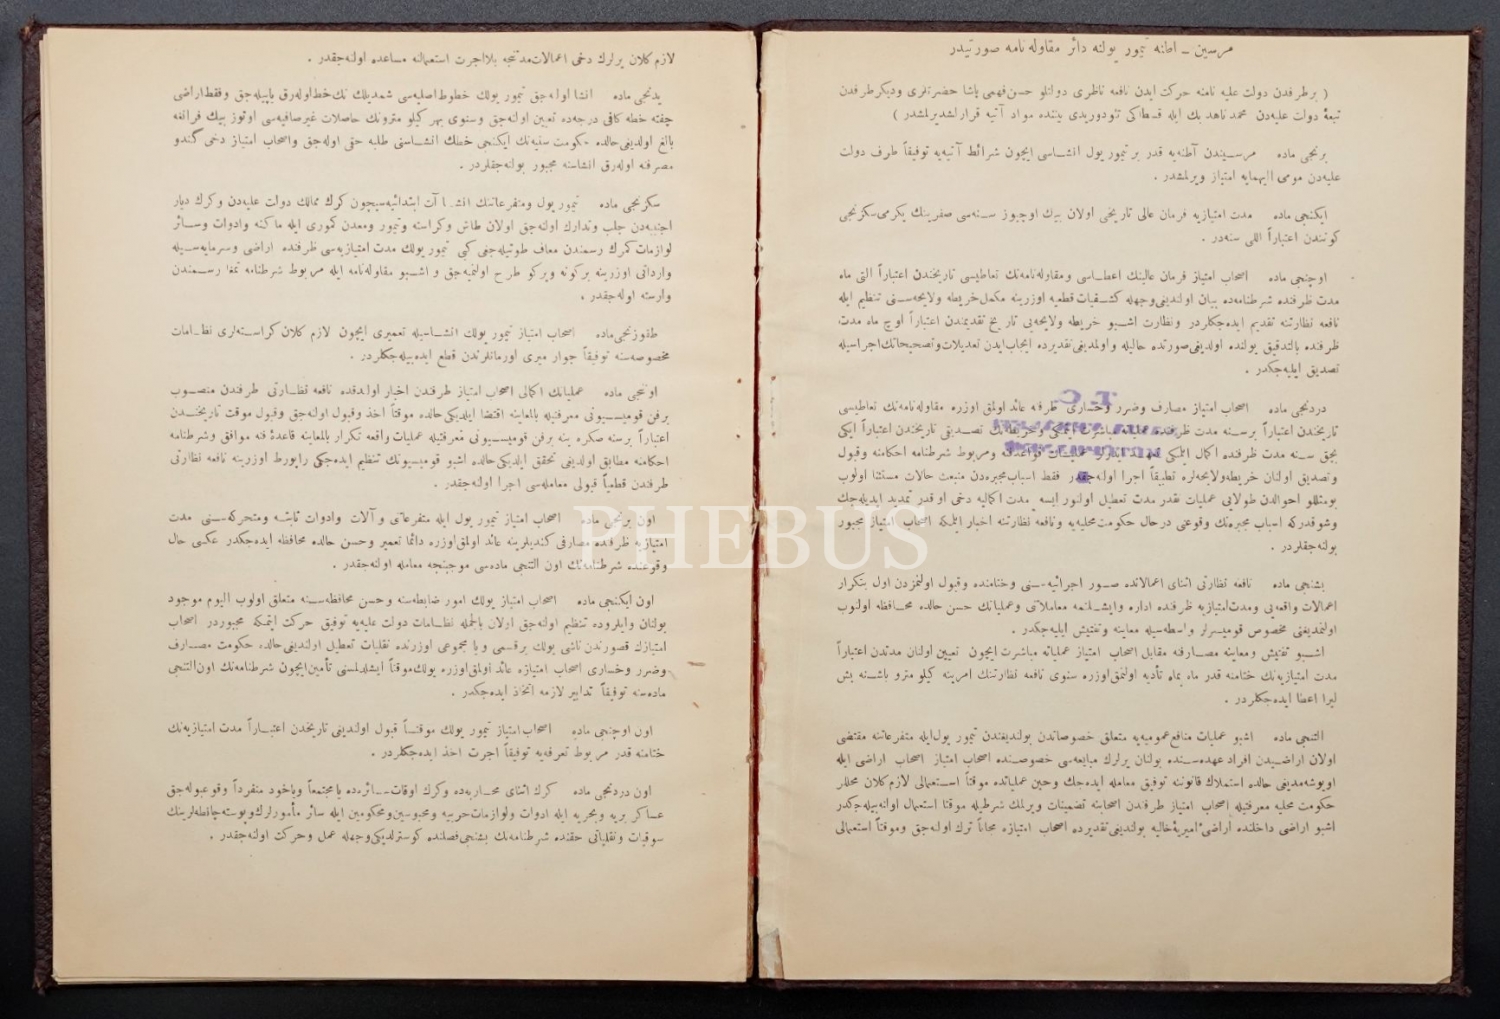 مرسین ـ اطنه تیمور یولنه دائر مقاوله نامه صورتیدر
( بر طرفدن دولت علیه نامنه حرکت ایدن نافعه ناظری دولتلو حسن فهمی پاشا حضرتلری و دیکر طرفدن
تبعهٔ دولت علیه‌دن محمد ناهد بك ایله قسطاکی تئودوریدی بیننده مواد آتیه قرارلشدیرلمشدر )
برنجی ماده مرسیندن آطنه‌یه قدر بر تیمور یول انشاسی ایچون شرائط آتیه‌یه توفیقاً طرف دولت
علیه‌دن مومی الیهمایه امتیاز ویرلمشدر .
ایکنجی ماده مدت امتیازیه فرمان عالی تاریخی اولان بیك اوچیوز سنه‌سی صفرینك یکرمی سکزنجی
کونندن اعتباراً اللی سنه‌در .
اوچنجی ماده اصحاب امتیاز فرمان عالینك اعطاسی و مقاوله‌نامه‌نك تعاطیسی تاریخندن اعتباراً التی ماه
مدت ظرفنده شرطنامه‌ده بیان اولندیغی وجهله کشفیات قطعیه اوزرینه مکمل خریطه ولایحه‌سنی تنظیم ایله
نافعه نظارتنه تقدیم ایده‌جکلردر ونظارت اشبو خریطه ولایحه‌یی تاریخ تقدیمندن اعتباراً اوچ ماه مدت
ظرفنده بالتدقیق یولنده اولدیغی صورتده حالیله و اولمدیغی تقدیرده ایجاب ایدن تعدیلات وتصحیحاتك اجراسیله
تصدیق ایلیه‌جکدر .
دردنجی ماده اصحاب امتیاز مصارف وضرر وخساری طرفه عائد اولمق اوزره مقاوله‌نامه‌نك تعاطیسی
تاریخندن اعتباراً بر سنه مدت ظرفنده عملیاته مباشرت ایتمکی وخریطه‌نك تصدیقی تاریخندن اعتباراً ایکی
بچق سنه مدت ظرفنده اکمال ایلمکی تعهد ایدرلر عملیات قواعد فنه ومربوط شرطنامه احکامنه وقبول
وتصدیق اولنان خریطه ولایحه‌لره تطبیقاً اجرا اوله‌جقدر فقط اسباب مجبره‌دن منبعث حالات مستثنا اولوب
بومثللو احوالدن طولایی عملیات نقدر مدت تعطیل اولنور ایسه مدت اکمالیه دخی او قدر تمدید ایدیله‌جك
وشو قدرکه اسباب مجبره‌نك وقوعنی درحال حکومت محلیه‌یه ونافعه نظارتنه اخبار ایتمکه اصحاب امتیاز مجبور
بولنه‌جقلردر .
بشنجی ماده نافعه نظارتی اثنای اعمالاتده صور اجرائیه‌سنی وختامنده وقبول اولنمزدن اول بتکرار
اعمالات واقعه‌یی ومدت امتیازیه ظرفنده اداره وایشلتمه معاملاتی وعملیاتك حسن حالده محافظه اولنوب
اولنمدیغنی مخصوص قومیسرلر واسطه‌سیله معاینه وتفتیش ایلیه‌جکدر .
اشبو تفتیش ومعاینه مصارفنه مقابل اصحاب امتیاز عملیاته مباشرت ایچون تعیین اولنان مدتدن اعتباراً
مدت امتیازیه‌نك ختامنه قدر ماه بماه تأدیه اولنمق اوزره سنوی نافعه نظارتنك امرینه کیلو مترو باشنه بش
لیرا اعطا ایده‌جکلردر .
التنجی ماده اشبو عملیات منافع عمومیه‌یه متعلق خصوصاتدن بولندیغندن تیمور یول ایله متفرعاتنه مقتضی
اولان اراضیدن افراد عهده‌سنده بولنان یرلرك مبایعه‌سی خصوصنده اصحاب امتیاز اصحاب اراضی ایله
اویوشه‌مدیغی حالده استملاك قانوننه توفیق معامله ایده‌جك وحین عملیاتده موقتاً استعمالی لازم کلان محللر
حکومت محلیه معرفتیله اصحاب امتیاز طرفندن اصحابنه تضمینات ویرلمك شرطیله موقتا استعمال اولنه‌بیله‌جکدر
اشبو اراضی داخلنده اراضیٔ امیریهٔ خالیه بولندیغی تقدیرده اصحاب امتیازه مجاناً ترك اوله‌جق وموقتاً استعمالی
لازم کلان یرلرك دخی اعمالات مدتنجه بلااجرت استعمالنه مساعده اولنه‌جقدر .
یدنجی ماده انشا اوله‌جق تیمور یولك خطوط اصلیه‌سی شمدیلك تك خط اوله‌رق یاپیله‌جق و فقط اراضی
چفته خطه کافی درجه‌ده تعیین اولنه‌جق وسنوی بهر کیلو مترونك حاصلات غیرصافیه‌سی اوتوز بیك فرانغه
بالغ اولدیغی حالده حکومت سنیه‌نك ایکنجی خطك انشاسنی طلبه حقی اوله‌جق واصحاب امتیاز دخی کندو
مصرفنه اوله‌رق انشاسنه مجبور بولنه‌جقلردر .
سکزنجی ماده تیمور یول ومتفرعاتنك انشاآت ابتدائیه‌سیچون کرك ممالك دولت علیه‌دن وکرك دیار
اجنبیه‌دن جلب وتدارك اوله‌جق اولان طاش وکراسته وتیمور ومعدن کموری ایله ماکنه وادوات وسائر
لوازمات کمرك رسمندن معاف طوتیله‌جغی کبی تیمور یولك مدت امتیازیه‌سی ظرفنده اراضی وسرمایه‌سیله
وارداتی اوزرینه برکونه ویرکو طرح اولنمیه‌جق و اشبو مقاوله‌نامه ایله مربوط شرطنامه تمغا رسمندن
وارسته اوله‌جقدر .
طقوزنجی ماده اصحاب امتیاز تیمور یولك انشاسیله تعمیری ایچون لازم کلان کراسته‌لری نظامات
مخصوصه‌سنه توفیقاً جوار میری اورمانلرندن قطع ایده‌بیله‌جکلردر .
اوننجی ماده عملیاتك اکمالی اصحاب امتیاز طرفندن اخبار اولندقده نافعه نظارتی طرفندن منصوب
بر فن قومیسیونی معرفتیله بالمعاینه اقتضا ایلدیکی حالده موقتاً اخذ وقبول اوله‌جق وقبول موقت تاریخندن
اعتباراً بر سنه صکره ینه بر فن قومیسیونی معرفتیله عملیات واقعه تکرار بالمعاینه قاعدهٔ فنه موافق وشرطنامه
احکامنه مطابق اولدیغی تحقق ایلدیکی حالده اشبو قومیسیونك تنظیم ایده‌جکی راپورط اوزرینه نافعه نظارتی
طرفندن قطعیاً قبولی معامله‌سی اجرا اوله‌جقدر .
اون برنجی ماده اصحاب امتیاز تیمور یول ایله متفرعاتی و آلات وادوات ثابته ومتحرکه‌سنی مدت
امتیازیه ظرفنده مصارفی کندیلرینه عائد اولمق اوزره دائما تعمیر وحسن حالده محافظه ایده‌جکدر عکسی حال
وقوعنده شرطنامه‌نك اون التنجی ماده‌سی موجبنجه معامله اوله‌جقدر .
اون ایکنجی ماده اصحاب امتیاز یولك امور ضابطه‌سنه وحسن محافظه‌سنه متعلق اولوب الیوم موجود
بولنان وایلروده تنظیم اوله‌جق اولان بالجمله نظامات دولت علیه‌یه توفیق حرکت ایتمکه مجبوردر اصحاب
امتیازك قصورندن ناشی یولك برقسمی ویا مجموعی اوزرنده نقلیات تعطیل اولندیغی حالده حکومت مصارف
وضرر وخساری اصحاب امتیازه عائد اولمق اوزره یولك موقتاً ایشلدلمسنی تأمین ایچون شرطنامه‌نك اون التنجی
ماده‌سنه توفیقاً تدابیر لازمه اتخاذ ایده‌جکدر .
اون اوچنجی ماده اصحاب امتیاز تیمور یولك موقتاً قبول اولندیغی تاریخدن اعتباراً مدت امتیازیه‌نك
ختامنه قدر مربوط تعرفه‌یه توفیقاً اجرت اخذ ایده‌جکلردر .
اون دردنجی ماده کرك اثنای محاربه‌ده وکرك اوقات سائره‌ده یا مجتمعاً ویاخود منفرداً وقوعبوله‌جق
عساکر بریه وبحریه ایله ادوات ولوازمات حربیه ومحبوسین ومحکومین ایله سائر مأمورلرك وپوسته چانطه‌لرینك
سوقیات ونقلیاتی حقنده شرطنامه‌نك بشنجی فصلنده کوسترلدیکی وجهله عمل وحرکت اولنه‌جقدر .
PHEBUS